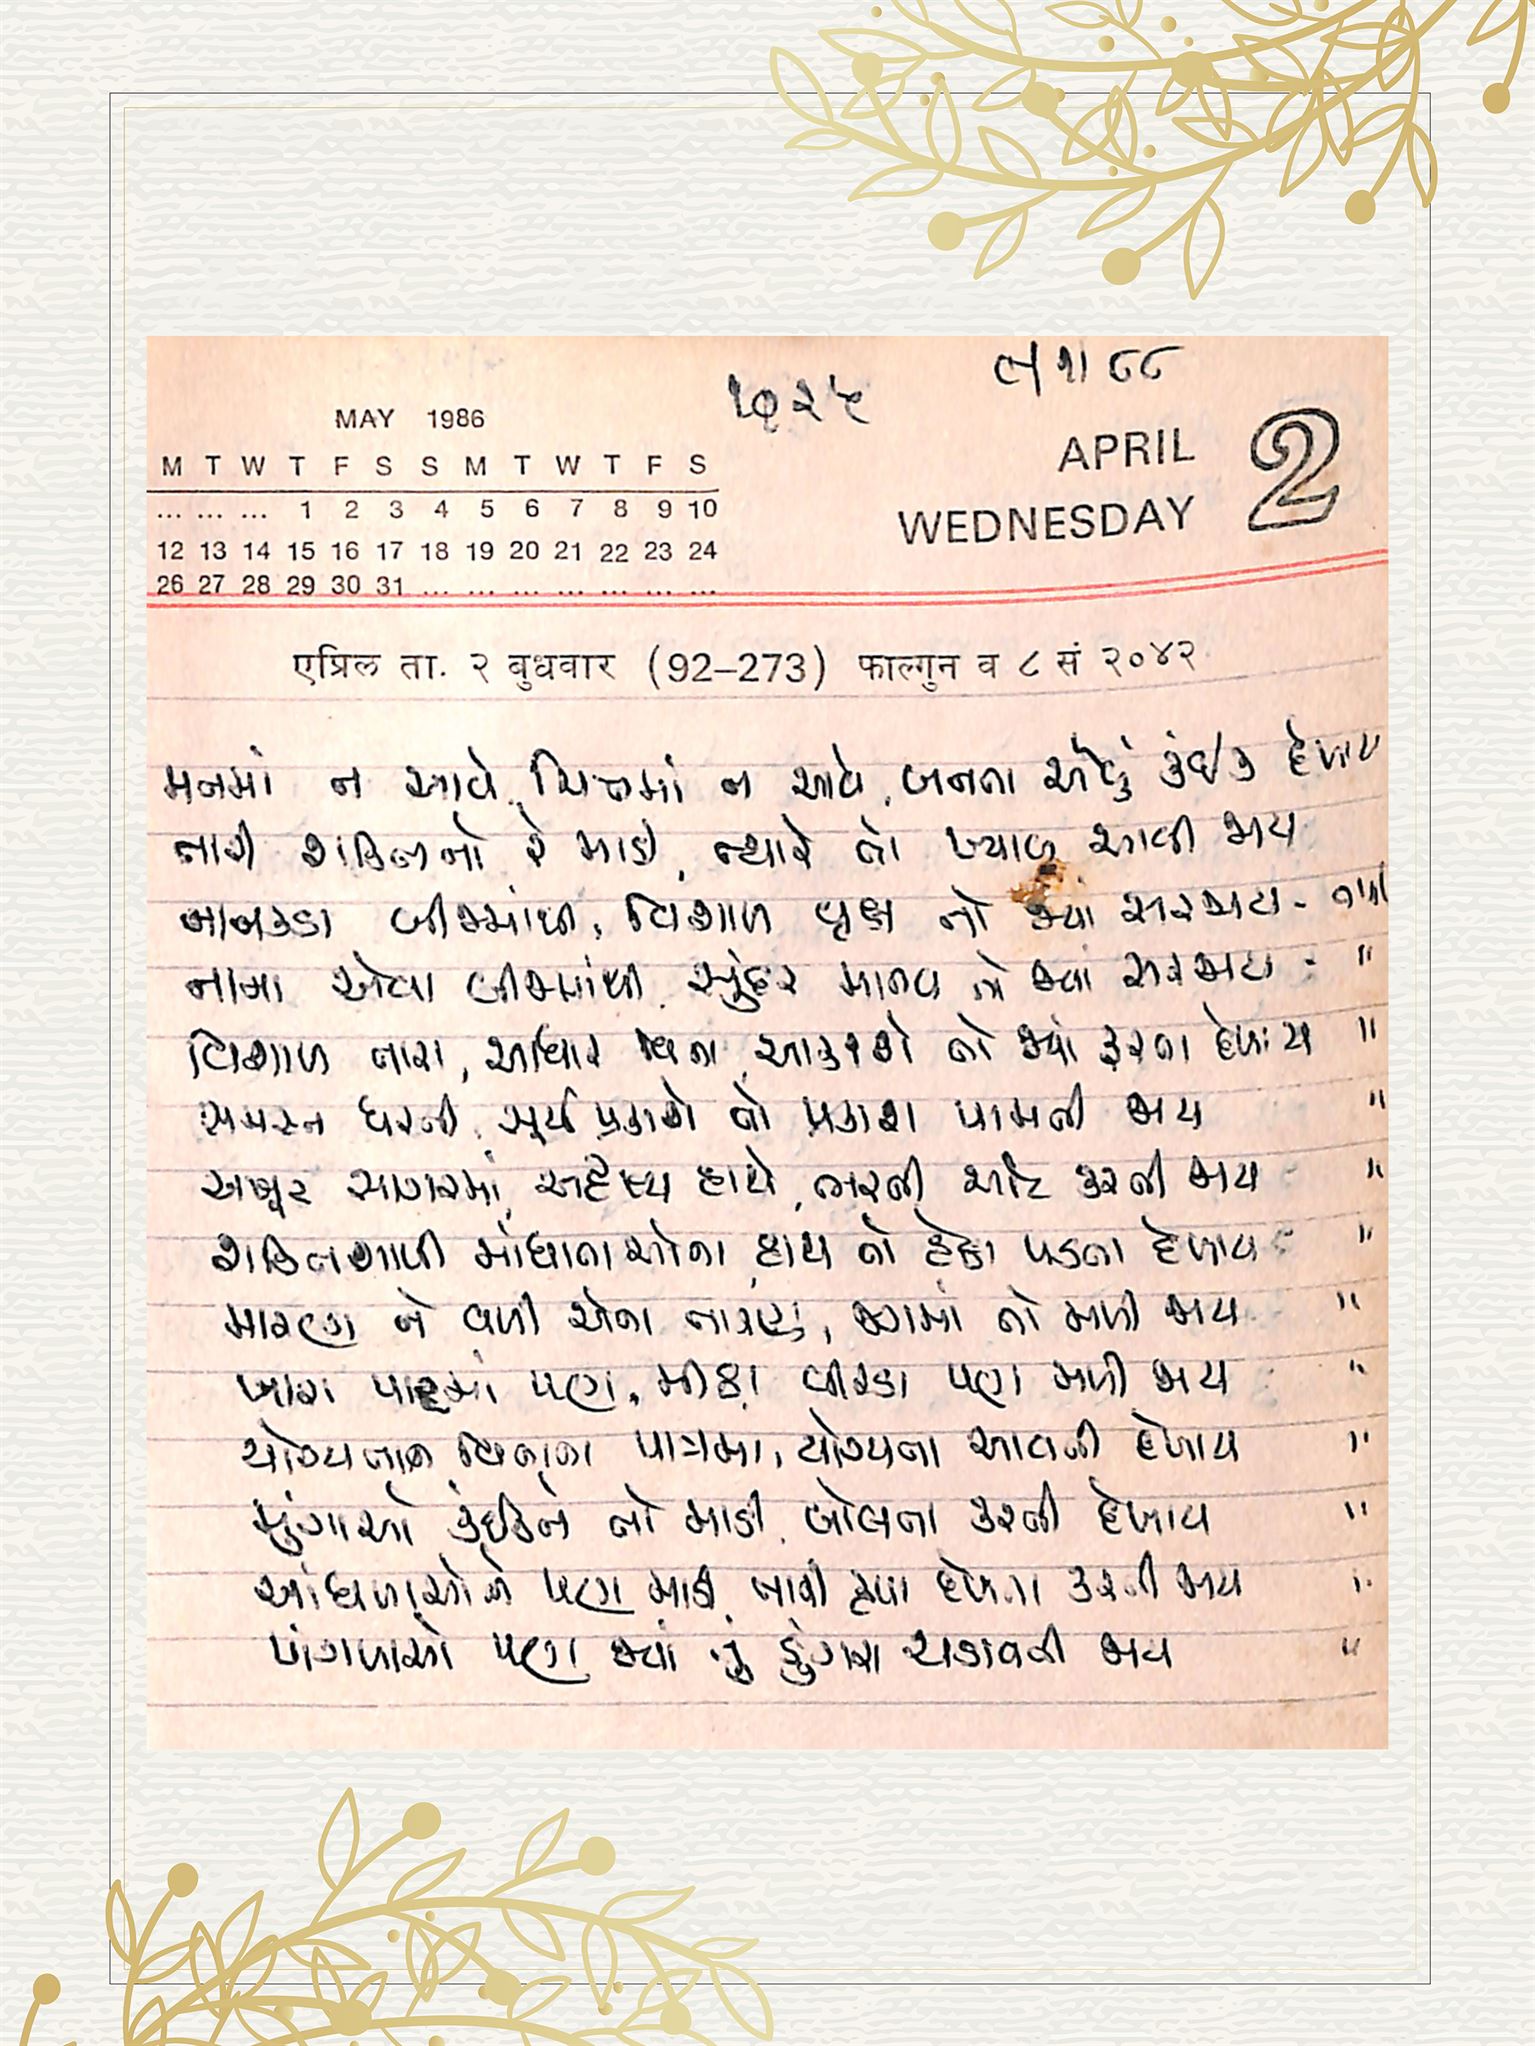 ૯|૧|૮૮
MAY 1986
M T W T F S S M T W T F S
... ... ... 1 2 3 4 5 6 7 8 9 10
12 13 14 15 16 17 18 19 20 21 22 23 24
26 27 28 29 30 31 ... ... ... ... ... ... ...
APRIL 2
WEDNESDAY
एप्रिल ता. २ बुधवार (92–273) फाल्गुन व ८ सं २०४२
મનમાં ન આવે, ચિત્તમાં ન આવે, બનતા એવું કંઈક દેખાય
તારી શક્તિનો રે માડી, ત્યારે તો ખ્યાલ આવી જાય
નાનકડા બીજમાંથી, વિશાળ વૃક્ષ તો જ્યાં સરજાય - તારી
નાના એવા બીજમાંથી, સુંદર માનવ તો જ્યાં સરજાય - "
વિશાળ તારા, આધાર વિના, આકાશે તો જ્યાં ફરતા દેખાય "
સમસ્ત ધરતી, સૂર્ય પ્રકાશે તો પ્રકાશ પામતી જાય "
અફાટ સાગરમાં, અદૃશ્ય હાથે, ભરતી ઓટ કરતી જાય - "
શક્તિશાળી માંધાતાઓના, હાથ તો હેઠા પડતા દેખાય - "
મારણ ને વળી એના તારણ, જગમાં તો મળી જાય "
ખારા પાટમાં પણ, મીઠા વીરડા પણ મળી જાય "
યોગ્યતા વિનાના પાત્રમાં, યોગ્યતા આવતી દેખાય "
મુંગાઓ કંઈકને તો માડી, બોલતા કરતી દેખાય "
આંધળાઓને પણ માડી, તારી કૃપા દેખતા કરતી જાય "
પાંગળાઓ પણ જ્યાં તું ડુંગરા ચડાવતી જાય "